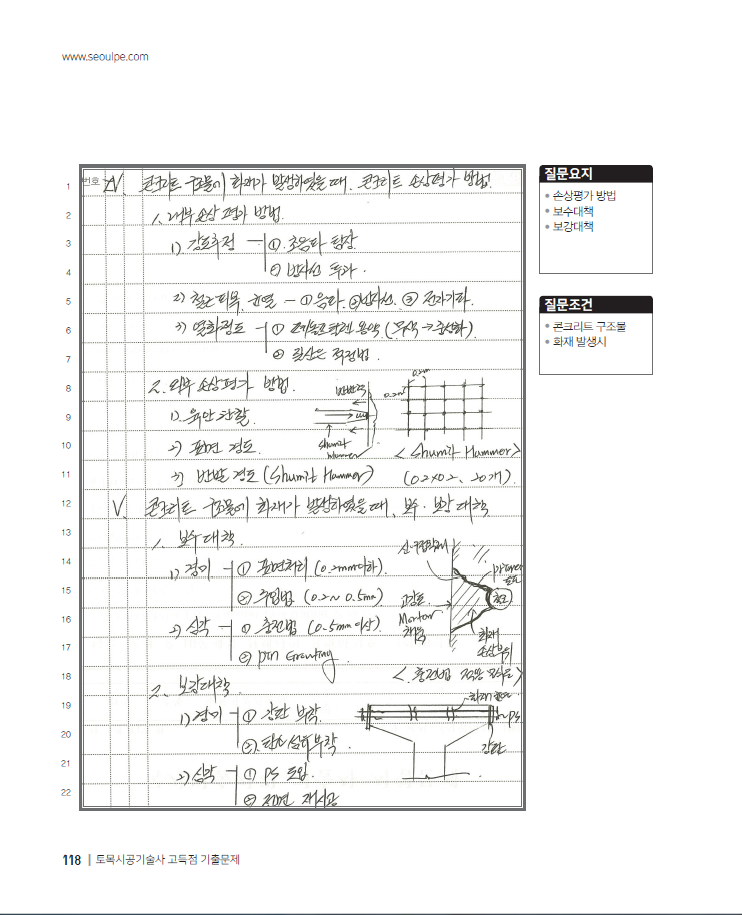 www.seoulpe.com
번호
1
Ⅳ. 콘크리트 구조물이 화재가 발생하였을 때, 콘크리트 손상평가 방법.
2
1. 내부 손상 평가 방법.
3
1) 강도추정 ① 초음파 탐상.
4
② 방사선 투과.
5
2) 철근피복, 균열 - ① 음파. ② 방사선. ③ 전자기파.
6
3) 열화정도 ① 페놀프탈레인 용액. (무색 → 중성화).
7
② 적정법.
8
2. 외부 손상평가 방법.
반발력
0.2m
0.2m
9
1). 육안관찰.
10
2) 표면 경도.
Shumit Hammer
< Shumit Hammer >
11
3) 반발경도 (Shumit Hammer)
(0.2×0.2, 20개).
12
Ⅴ. 콘크리트 구조물이 화재가 발생하였을 때, 보수·보강 대책
13
1. 보수대책.
신·구접착제
14
1) 경미 ① 표면처리 (0.2mm이하).
Primer 도포
15
② 주입법 (0.2~0.5mm)
철근
고강도 Mortar 채움
16
2) 심각 ① 충전법 (0.5mm 이상).
화재 손상부위
17
② pin Grouting.
18
2. 보강대책.
< 충전법 적용 모식도 >
19
1) 경미 ① 강판 부착.
PS
20
② 탄소섬유부착.
강판
21
2) 심각 ① PS 도입.
22
② 전면 재시공
질문요지
• 손상평가 방법
• 보수대책
• 보강대책
질문조건
• 콘크리트 구조물
• 화재 발생시
118 | 토목시공기술사 고득점 기출문제